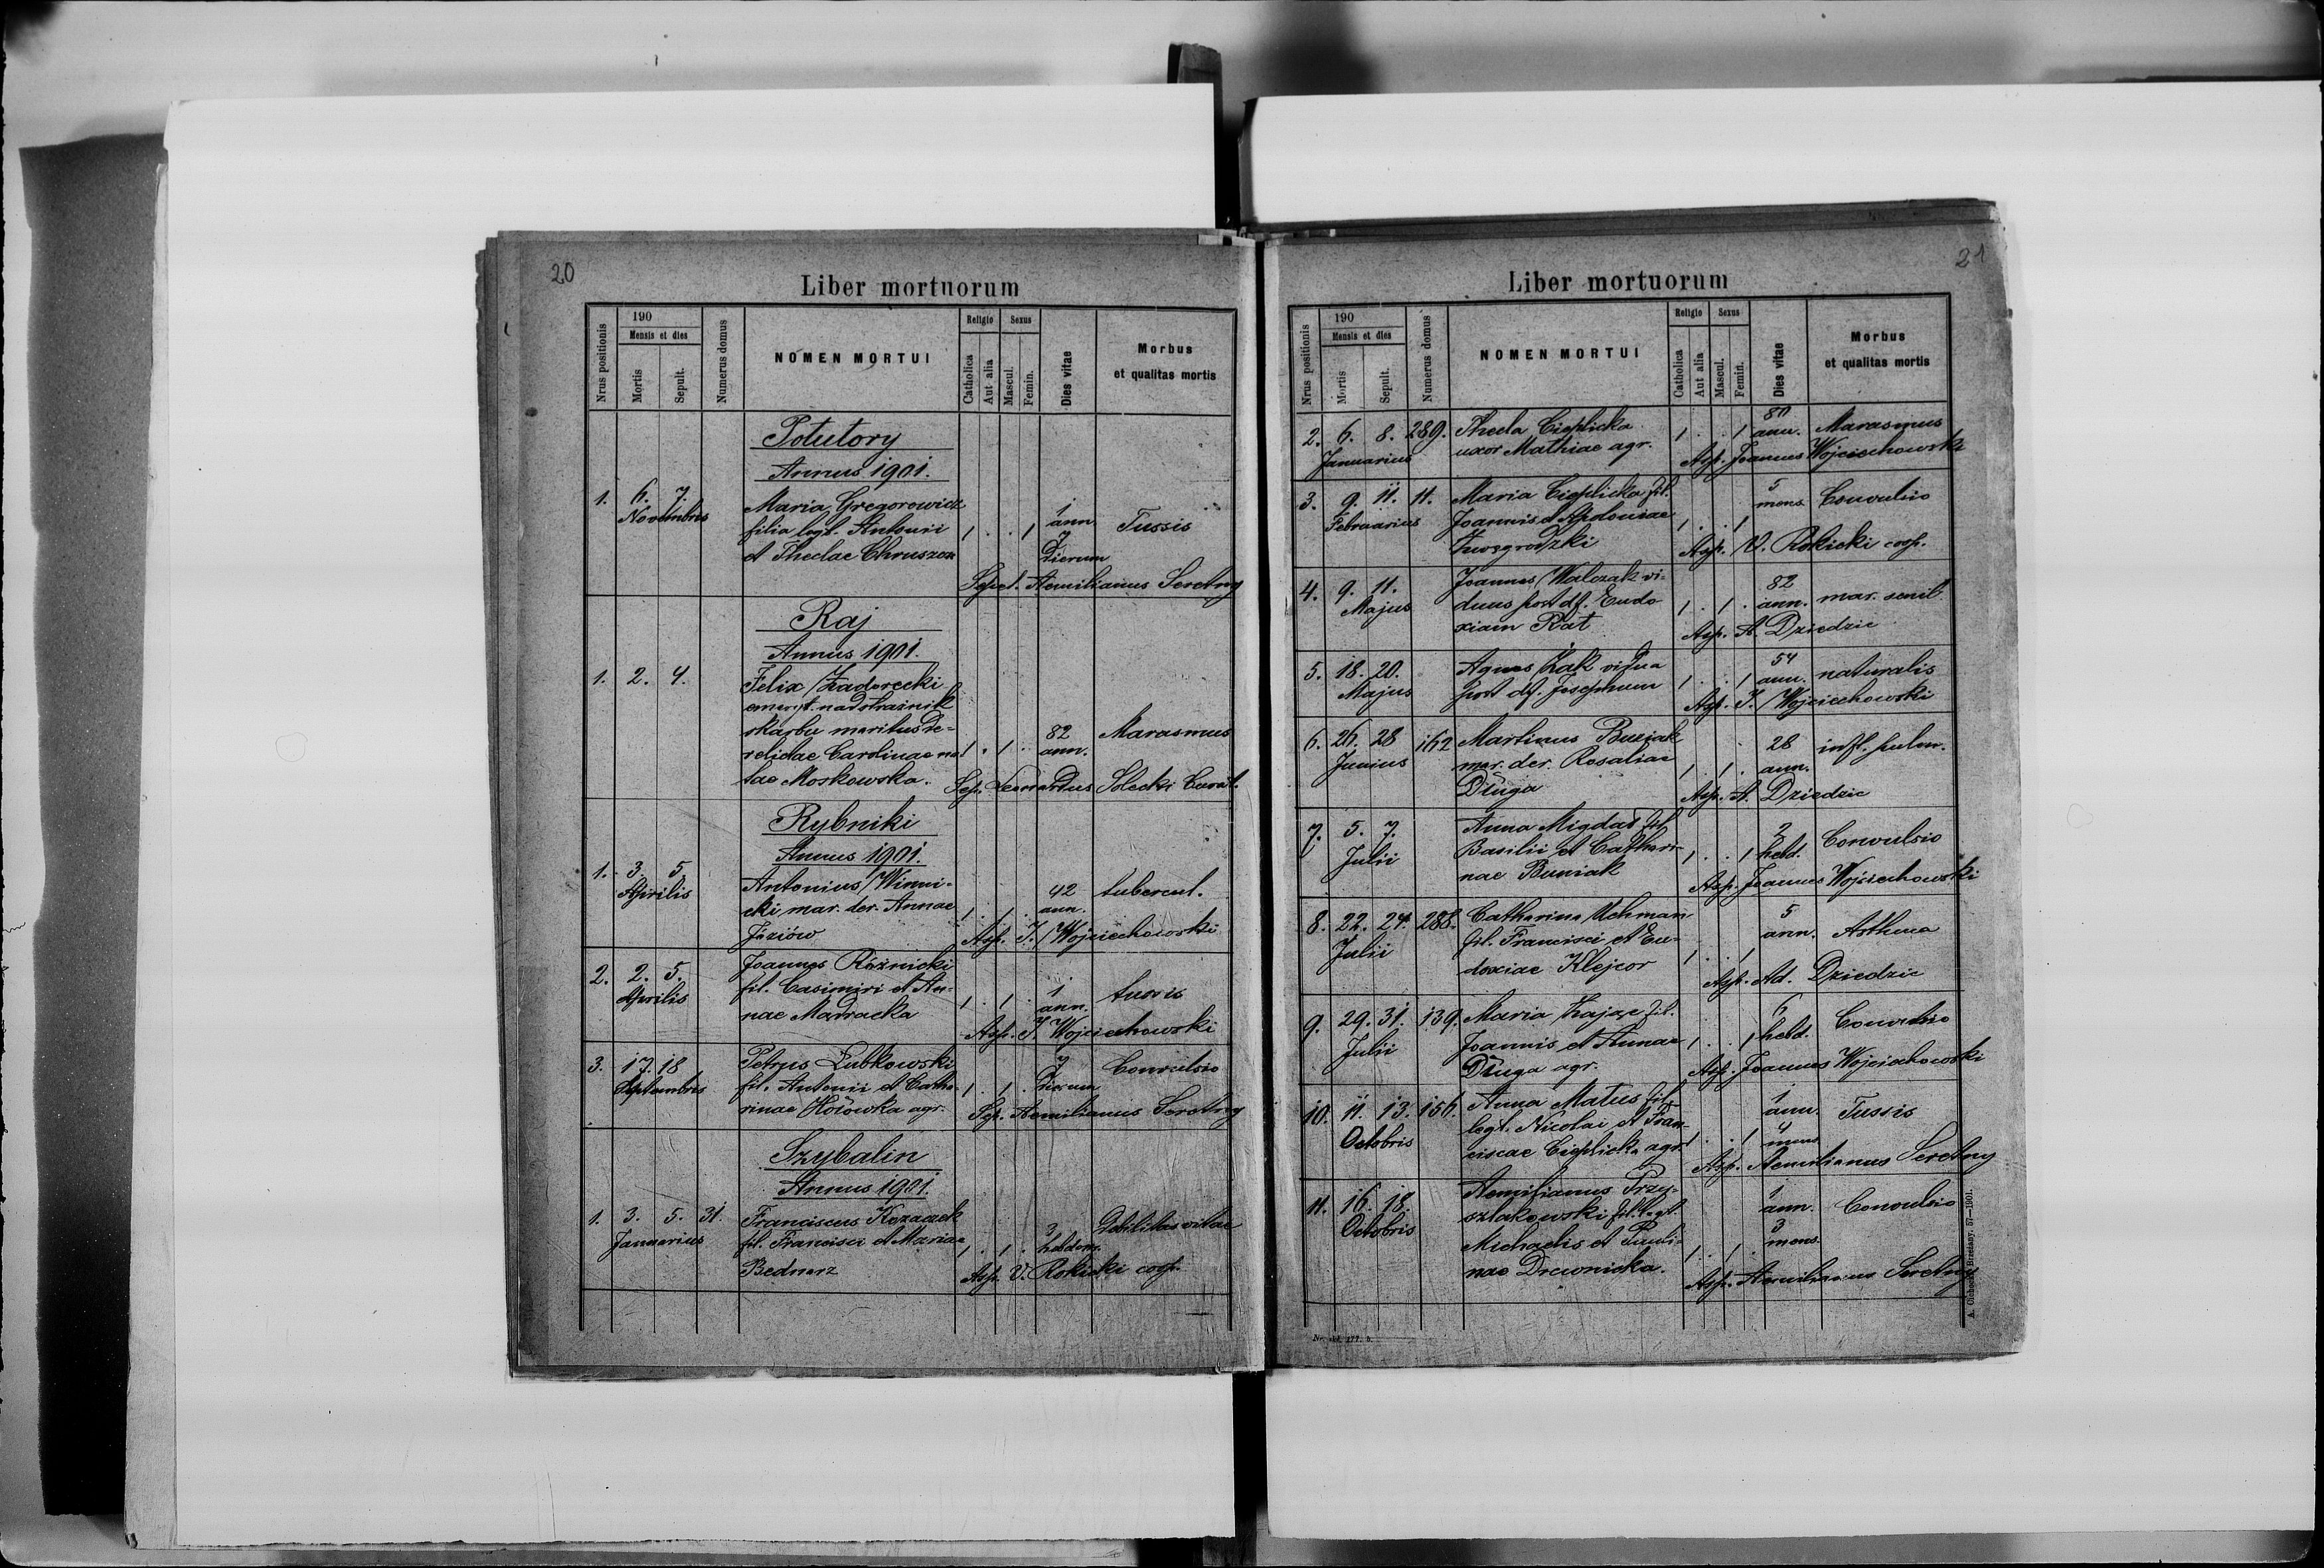 20
Liber mortuorum
Nrus positionis
190
Mensis et dies
Mortis
Sepult.
Numerus domus
NOMEN MORTUI
Religio
Catholica
Aut alia
Sexus
Mascul.
Femin.
Dies vitae
Morbus
et qualitas mortis
Potutory
Annus 1901.
1. 6. 7. Maria Gregorowicz 1
Novembris filia legt. Antonii 1 . . 1 ann. Tussis
et Theclae Chruszcz 7 Dierum
Sepel. Aemilianus Seretny
Raj
Annus 1901.
1. 2. 4. Felix Zadorecki
emeryt. nadstrażnik
skarbu maritus de-
relictae Carolinae na- 1 . 1 . 82 ann. Marasmus
tae Moskowska.
Sep. Leonardus Solecki Curat.
Rybniki
Annus 1901.
1. 3. 5. Antonius Winni- 42 tubercul.
Aprilis cki, mar. der. Annae 1 . 1 . ann.
Jaziów Asp. J. Wojciechowski
2. 2. 5. Joannes Rożnicki
Aprilis fil. Casimiri et An- 1 . 1 . 1 ann. tussis
nae Madracka
Asp. J. Wojciechowski
3. 17. 18 Petrus Łubkowski 7 Convulsio
Septembris fil. Antonii et Catha- 1 . 1 . Dierum
rinae Hołowka agr. Sep. Aemilianus Seretny
Szybalin
Annus 1901.
1. 3. 5. 31. Franciscus Kozaczek 3 Debilitas vitae
Januarius fil. Francisci et Mariae 1 . 1 . hebdom.
Bednarz Asp. V. Rokicki coop.
21
Liber mortuorum
Nrus positionis
190
Mensis et dies
Mortis
Sepult.
Numerus domus
NOMEN MORTUI
Religio
Catholica
Aut alia
Sexus
Mascul.
Femin.
Dies vitae
Morbus
et qualitas mortis
2. 6. 8. 289. Thecla Cieplicka 1 . . 1 ann. Marasmus
Januarius uxor Mathiae agr. Asp. Joannes Wojciechowski
3. 9. 11. 11. Maria Cieplicka fil. 5 mens. Convulsio
Februarius Joannis et Apoloniae 1 . . 1
Asp. V. Rokicki coop.
4. 9. 11. Joannes Walczak vi- 82
Majus duus post df. Eudo- 1 . 1 . ann. mar. senil.
xiam Rat Asp. A. Dziedzic
5. 18. 20. Agnes Żak vidua 54 naturalis
Majus post df. Josephum 1 . . 1 ann.
Asp. J. Wojciechowski
6. 26. 28 162 Martinus Buziak 28 infl. pulm.
Junius mar. der. Rosaliae 1 . 1 . ann.
Długa Asp. A. Dziedzic
7. 5. 7. Anna Migdał fil. 2 Convulsio
Julii Basilii et Cathari- 1 . . 1 hebd.
nae Buniak Asp. Joannes Wojciechowski
8. 22. 24. 288. Catharina Uchman 5
Julii fil. Francisci et Eu- 1 . . 1 ann. Asthma
doxiae Klejcor Asp. Ad. Dziedzic
9. 29. 31. 139. Maria Zając fil. 6 Convulsio
Julii Joannis et Annae 1 . . 1 hebd.
Długa agr. Asp. Joannes Wojciechowski
10. 11. 13. 156. Anna Matus fil. 1 ann. Tussis
Octobris legt. Nicolai et Fran- 1 . . 1 4 mens
ciscae Cieplicka agr. Asp. Aemilianus Seretny
11. 16. 18. Aemilianus Przy- 1 ann. Convulsio
Octobris szlakowski fil. legt. 3 mens.
Michaelis et Pauli- 1 . 1 .
nae Drewnicka. Asp. Aemilianus Seretny
Brzeżany. 57—1901.